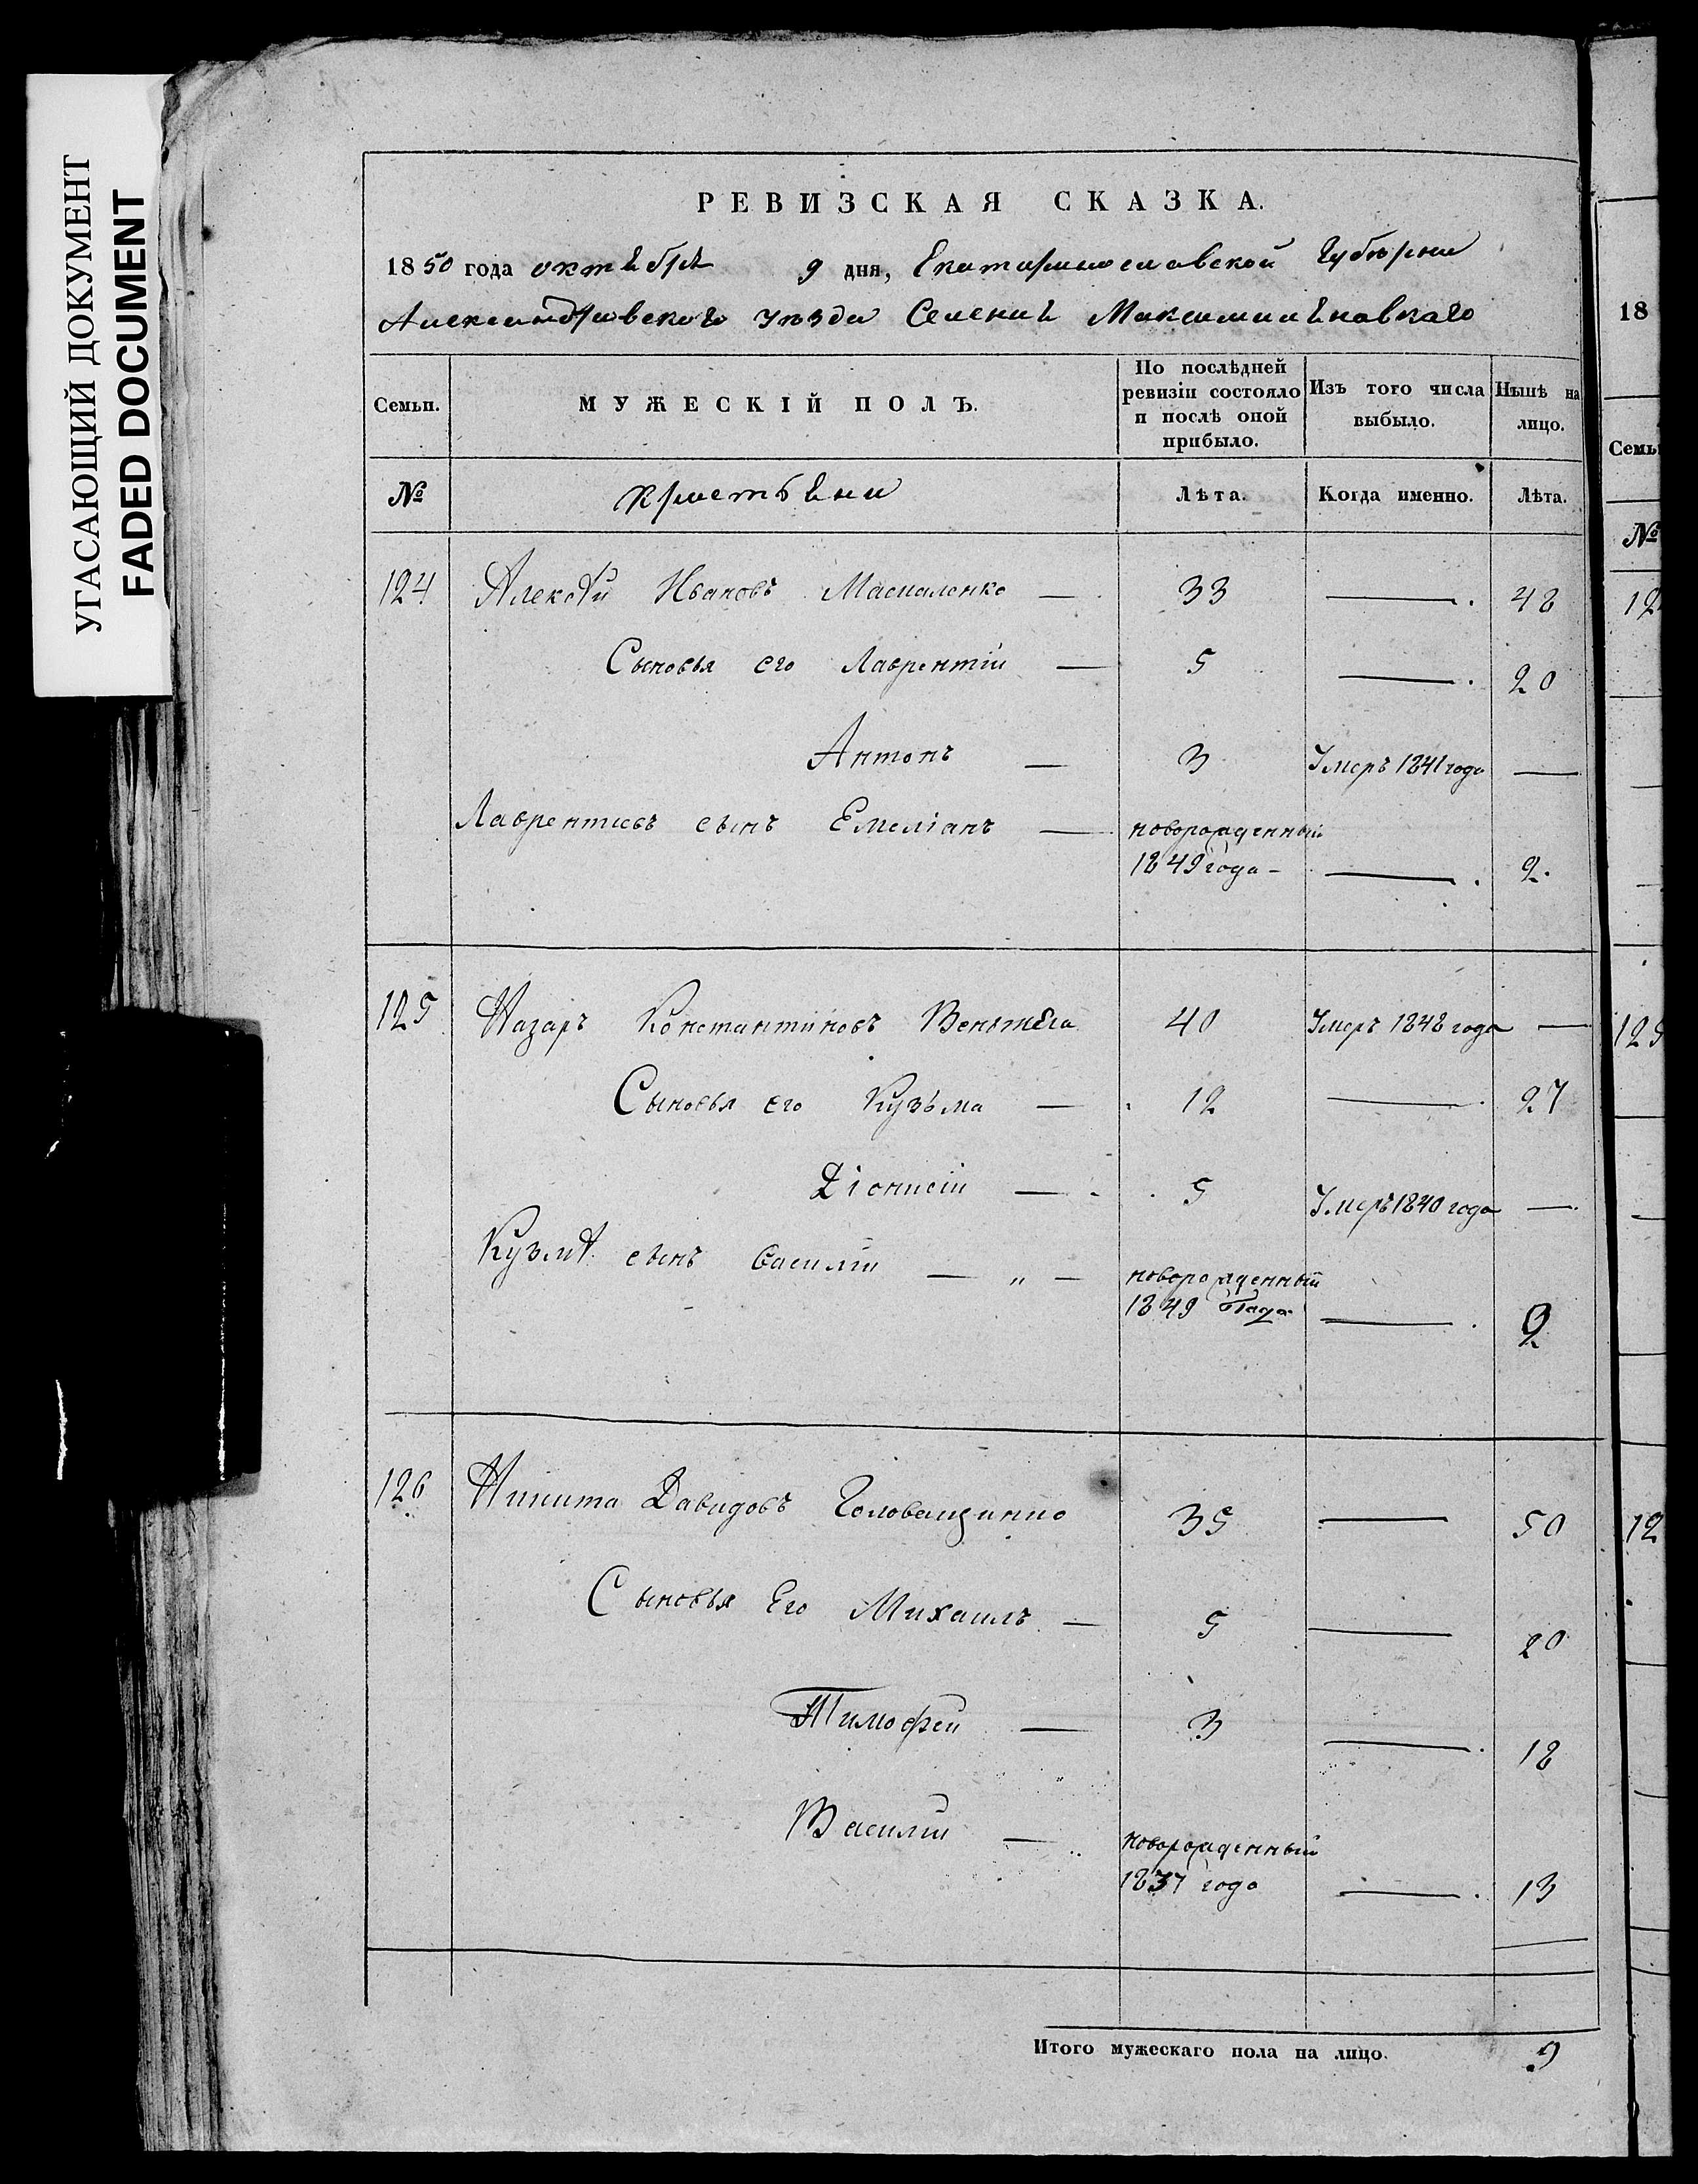 УГАСАЮЩИЙ ДОКУМЕНТ
FADED DOCUMENT
РЕВИЗСКАЯ СКАЗКА.
1850 года октября 9 дня, Екатеринославской Губерни
Александровского уѣзда Селения Максимилияновкаго
Семьи.
МУЖЕСКІЙ ПОЛЪ.
По послѣдней
ревизіи состояло
и послѣ оной
прибыло.
Изъ того числа
выбыло.
Нынѣ на
лицо.
№ крестьяни Лѣта. Когда именно. Лѣта.
124 Алексѣй Ивановъ — 33 — 48
Сыновья его Лаврентій — 5 — 20
Антонъ — 3 Умеръ 1841 года —
Лаврентиевъ сынъ Емеліанъ — новорожденный
1849 года — — 2
125 Назаръ Константиновъ 40 Умеръ 1848 года —
Сыновья его Кузьма — 12 — 27
Діонисій — 5 Умеръ 1840 года —
Кузмы сынъ Василій — „ — новорожденный
1849 Года — 2
126 Никита Давидовъ 35 — 50
Сыновья Его Михаилъ — 5 — 20
Тимофей — 3 — 18
Василій — новорожденный
1837 года — 13
Итого мужескаго пола на лицо. 9
18
Семьи
№
12
125
12